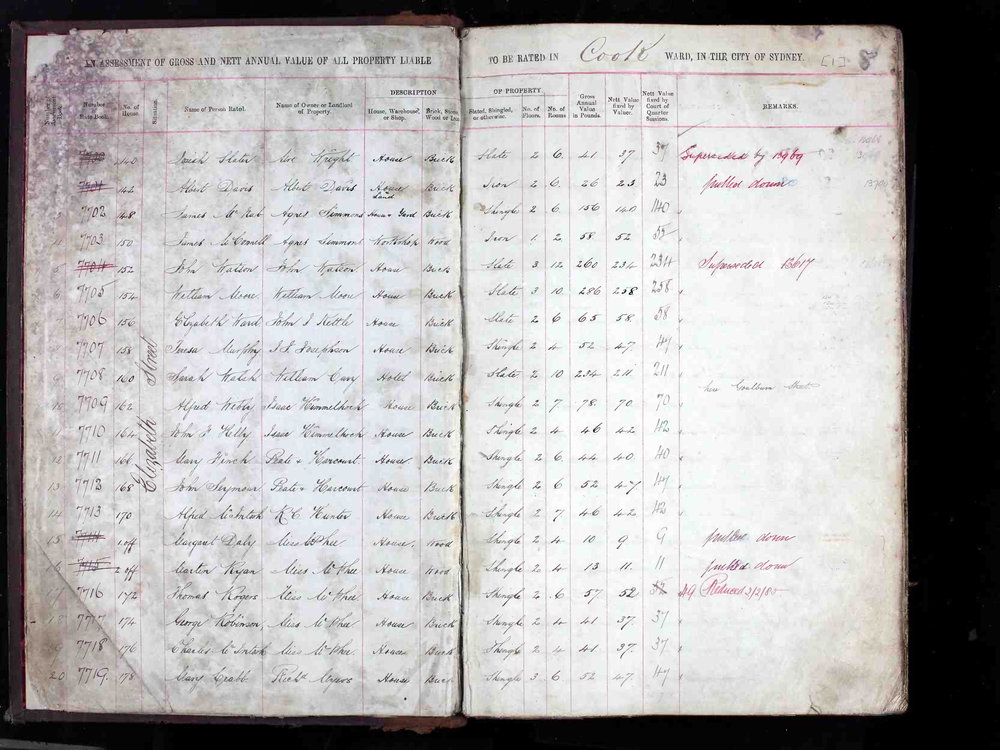 AN ASSESSMENT OF GROSS AND NETT ANNUAL VALUE OF ALL PROPERTY LIABLE TO BE RATED IN Cook WARD, IN THE CITY OF SYDNEY. [1]
DESCRIPTION OF PROPERTY
Number Rate Book. No. of House. Situation. Name of Person Rated. Name of Owner or Landlord of Property. House, Warehouse, or Shop. Brick, Stone, Wood or Iron. Slated, Shingled, or otherwise. No. of Floors. No. of Rooms Gross Annual Value in Pounds. Nett Value fixed by Valuer. Nett Value fixed by Court of Quarter Sessions. REMARKS.
Elizabeth Street
140 Slater Wright House Brick Slate 2 6. 41 37. 37 Superseded by
7701 142 Albert Davis Albert Davis House Brick Iron 2 6. 26 23 23 pulled down
Land
7702 148 James Agnes Simmons House & Yard Brick Shingle 2 6. 156 140 140
7703 150 James McConnell Agnes Simmons Workshop Wood Iron 1. 2. 58. 52
5 7704 152 John Watson John Watson House Brick Slate 3 12 260 234 234 Superseded 13617
6 7705 154 William Moore William Moore House Brick Slate 3 10. 286 258 258
7706 156 Elizabeth Ward John J Kettle House Brick Slate 2 6 65 58. 58
7707 158 Teresa Murphy J. J. Josephson House Brick Shingle 2 4 52 47. 47
9 7708 160 Sarah Walsh William Cary Hotel Brick Slate 2 10 234 211. 211
here Goulburn Street
10 7709 162 Alfred Isaac House Brick Shingle 2 7. 78. 70 70
7710 164 John J Kelly Isaac House Brick Shingle 2 4 46 42 42
12 7711 166 Mary Finch Peate & Harcourt House Brick Shingle 2 6. 44 40. 40
13 7712 168 John Seymour Peate & Harcourt House Brick Shingle 2 6 52 47 47
14 7713 170 Alfred McIntosh R. C. Hunter House Brick Shingle 2 7. 46 42. 42
15 7714 1 off Margaret Daly Miss McPhee House. Wood Shingle 2 4 10 9 9 pulled down
16 7715 2 off Martin Ryan Miss McPhee House Wood Shingle 2 4 13 11. 11 pulled down
17 7716 172 Thomas Rogers Miss McPhee House Brick Shingle 2 6 57 52 52 49 Reduced
18 7717 174 George Robinson, Miss McPhee House Brick Shingle 2 4 41 37. 37
7718 176 Charles McIntosh Miss McPhee. House Brick Shingle 2 4 41 37. 37
20 7719. 178 Mary Crabb Richd Myers House Brick Shingle 3 6. 52 47. 47